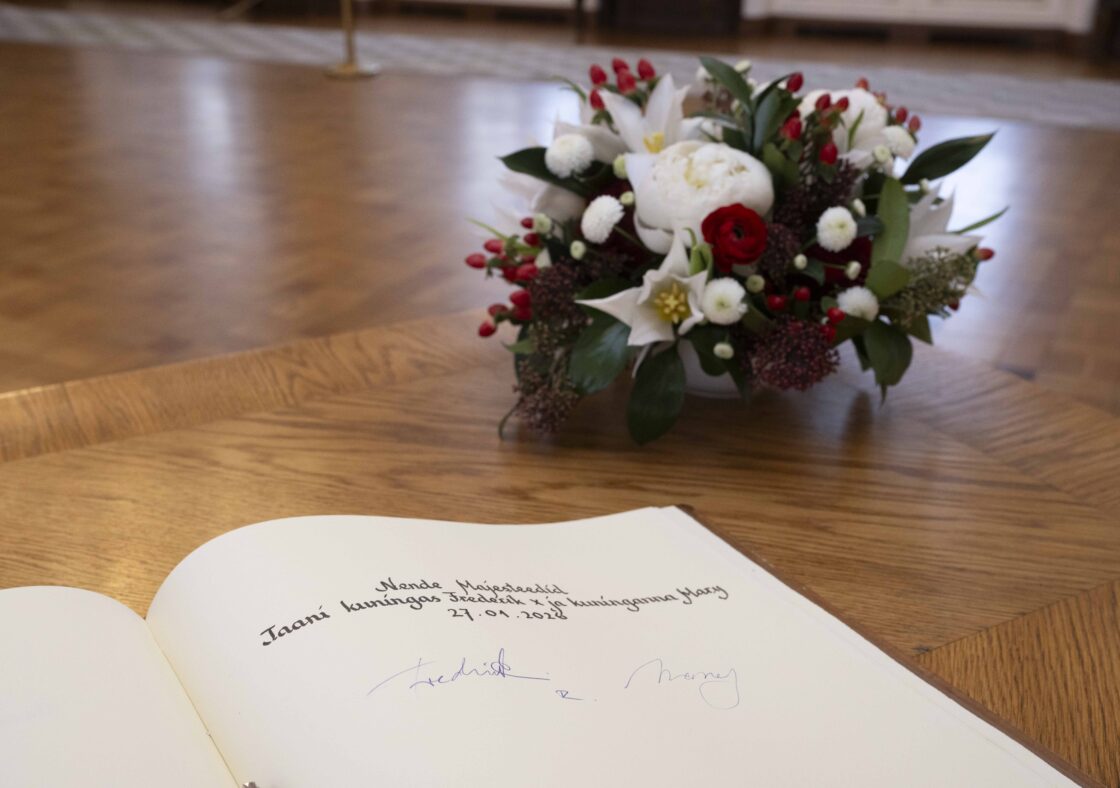 Nende Majesteedid
Taani kuningas Frederik X ja kuninganna Mary
27.01.2026
Frederik R. Mary